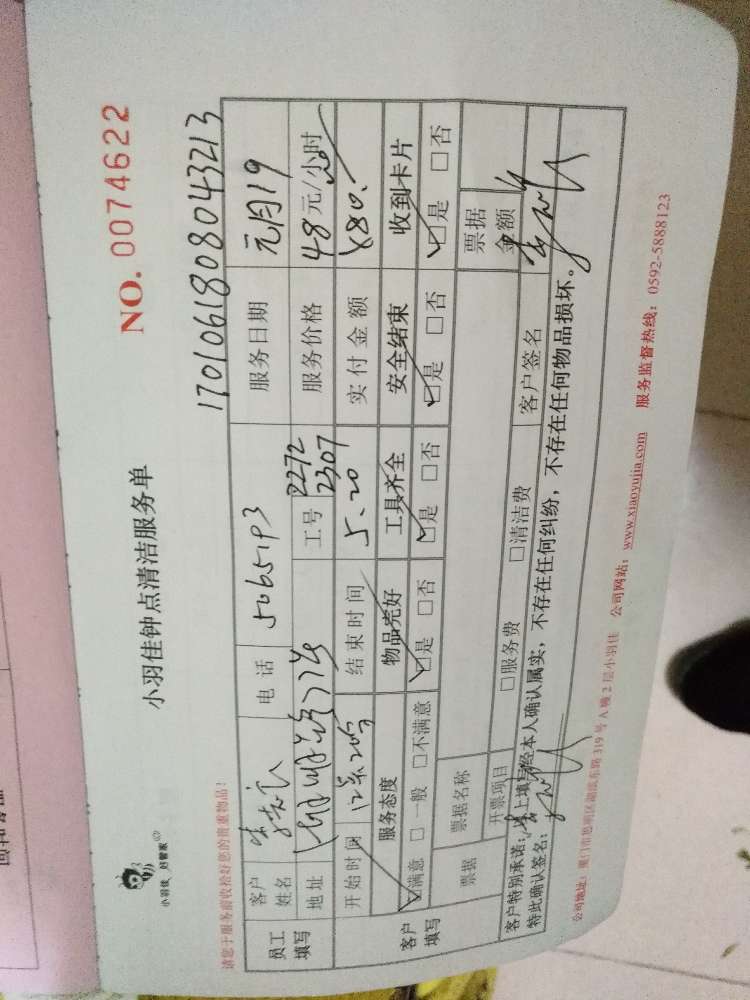 小羽佳 好管家
小羽佳钟点清洁服务单
NO. 0074622
请您于服务前收拾好您的贵重物品!
1701061808043213
员工填写 客户姓名 电话 5065193 服务日期 元月19
地址 工号 2272 2307 服务价格 48元/小时
开始时间 结束时间 5.20 实付金额
客户填写 服务态度 物品完好 工具齐全 安全结束 收到卡片
☑满意 □一般 □不满意 ☑是 □否 ☑是 □否 ☑是 □否 ☑是 □否
票据 票据名称 票据金额
开票项目 □服务费 □清洁费 客户签名
客户特别承诺:以上填写经本人确认属实,不存在任何纠纷,不存在任何物品损坏。
特此确认签名:
公司地址:厦门市思明区湖滨东路319号A幢2层小羽佳 公司网站:www.xiaoyujia.com 服务监督热线:0592-5888123